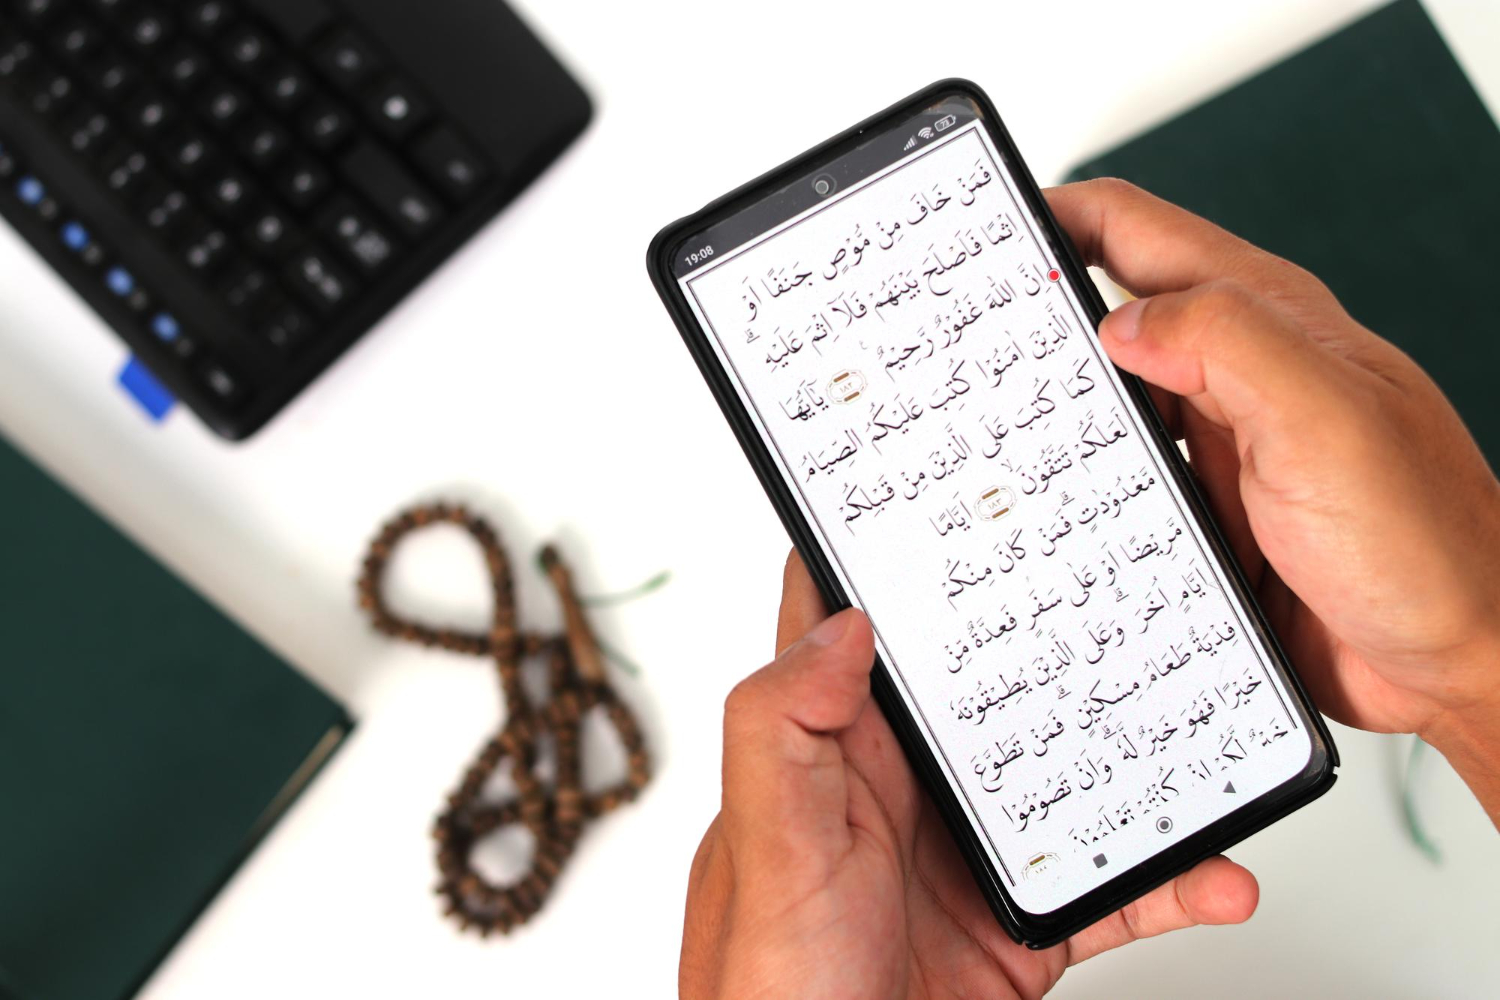 19:08
73
فَمَنْ خَافَ مِنْ مُّوْصٍ جَنَفًا اَوْ
اِثْمًا فَاَصْلَحَ بَيْنَهُمْ فَلَآ اِثْمَ عَلَيْهِ ۗ
اِنَّ اللّٰهَ غَفُوْرٌ رَّحِيْمٌ ١٨٢ يٰٓاَيُّهَا
الَّذِيْنَ اٰمَنُوْا كُتِبَ عَلَيْكُمُ الصِّيَامُ
كَمَا كُتِبَ عَلَى الَّذِيْنَ مِنْ قَبْلِكُمْ
لَعَلَّكُمْ تَتَّقُوْنَۙ ١٨٣ اَيَّامًا
مَّعْدُوْدٰتٍۗ فَمَنْ كَانَ مِنْكُمْ
مَّرِيْضًا اَوْ عَلٰى سَفَرٍ فَعِدَّةٌ مِّنْ
اَيَّامٍ اُخَرَ ۗ وَعَلَى الَّذِيْنَ يُطِيْقُوْنَهٗ
فِدْيَةٌ طَعَامُ مِسْكِيْنٍۗ فَمَنْ تَطَوَّعَ
خَيْرًا فَهُوَ خَيْرٌ لَّهٗ ۗ وَاَنْ تَصُوْمُوْا
خَيْرٌ لَّكُمْ اِنْ كُنْتُمْ تَعْلَمُوْنَ
١٨٤